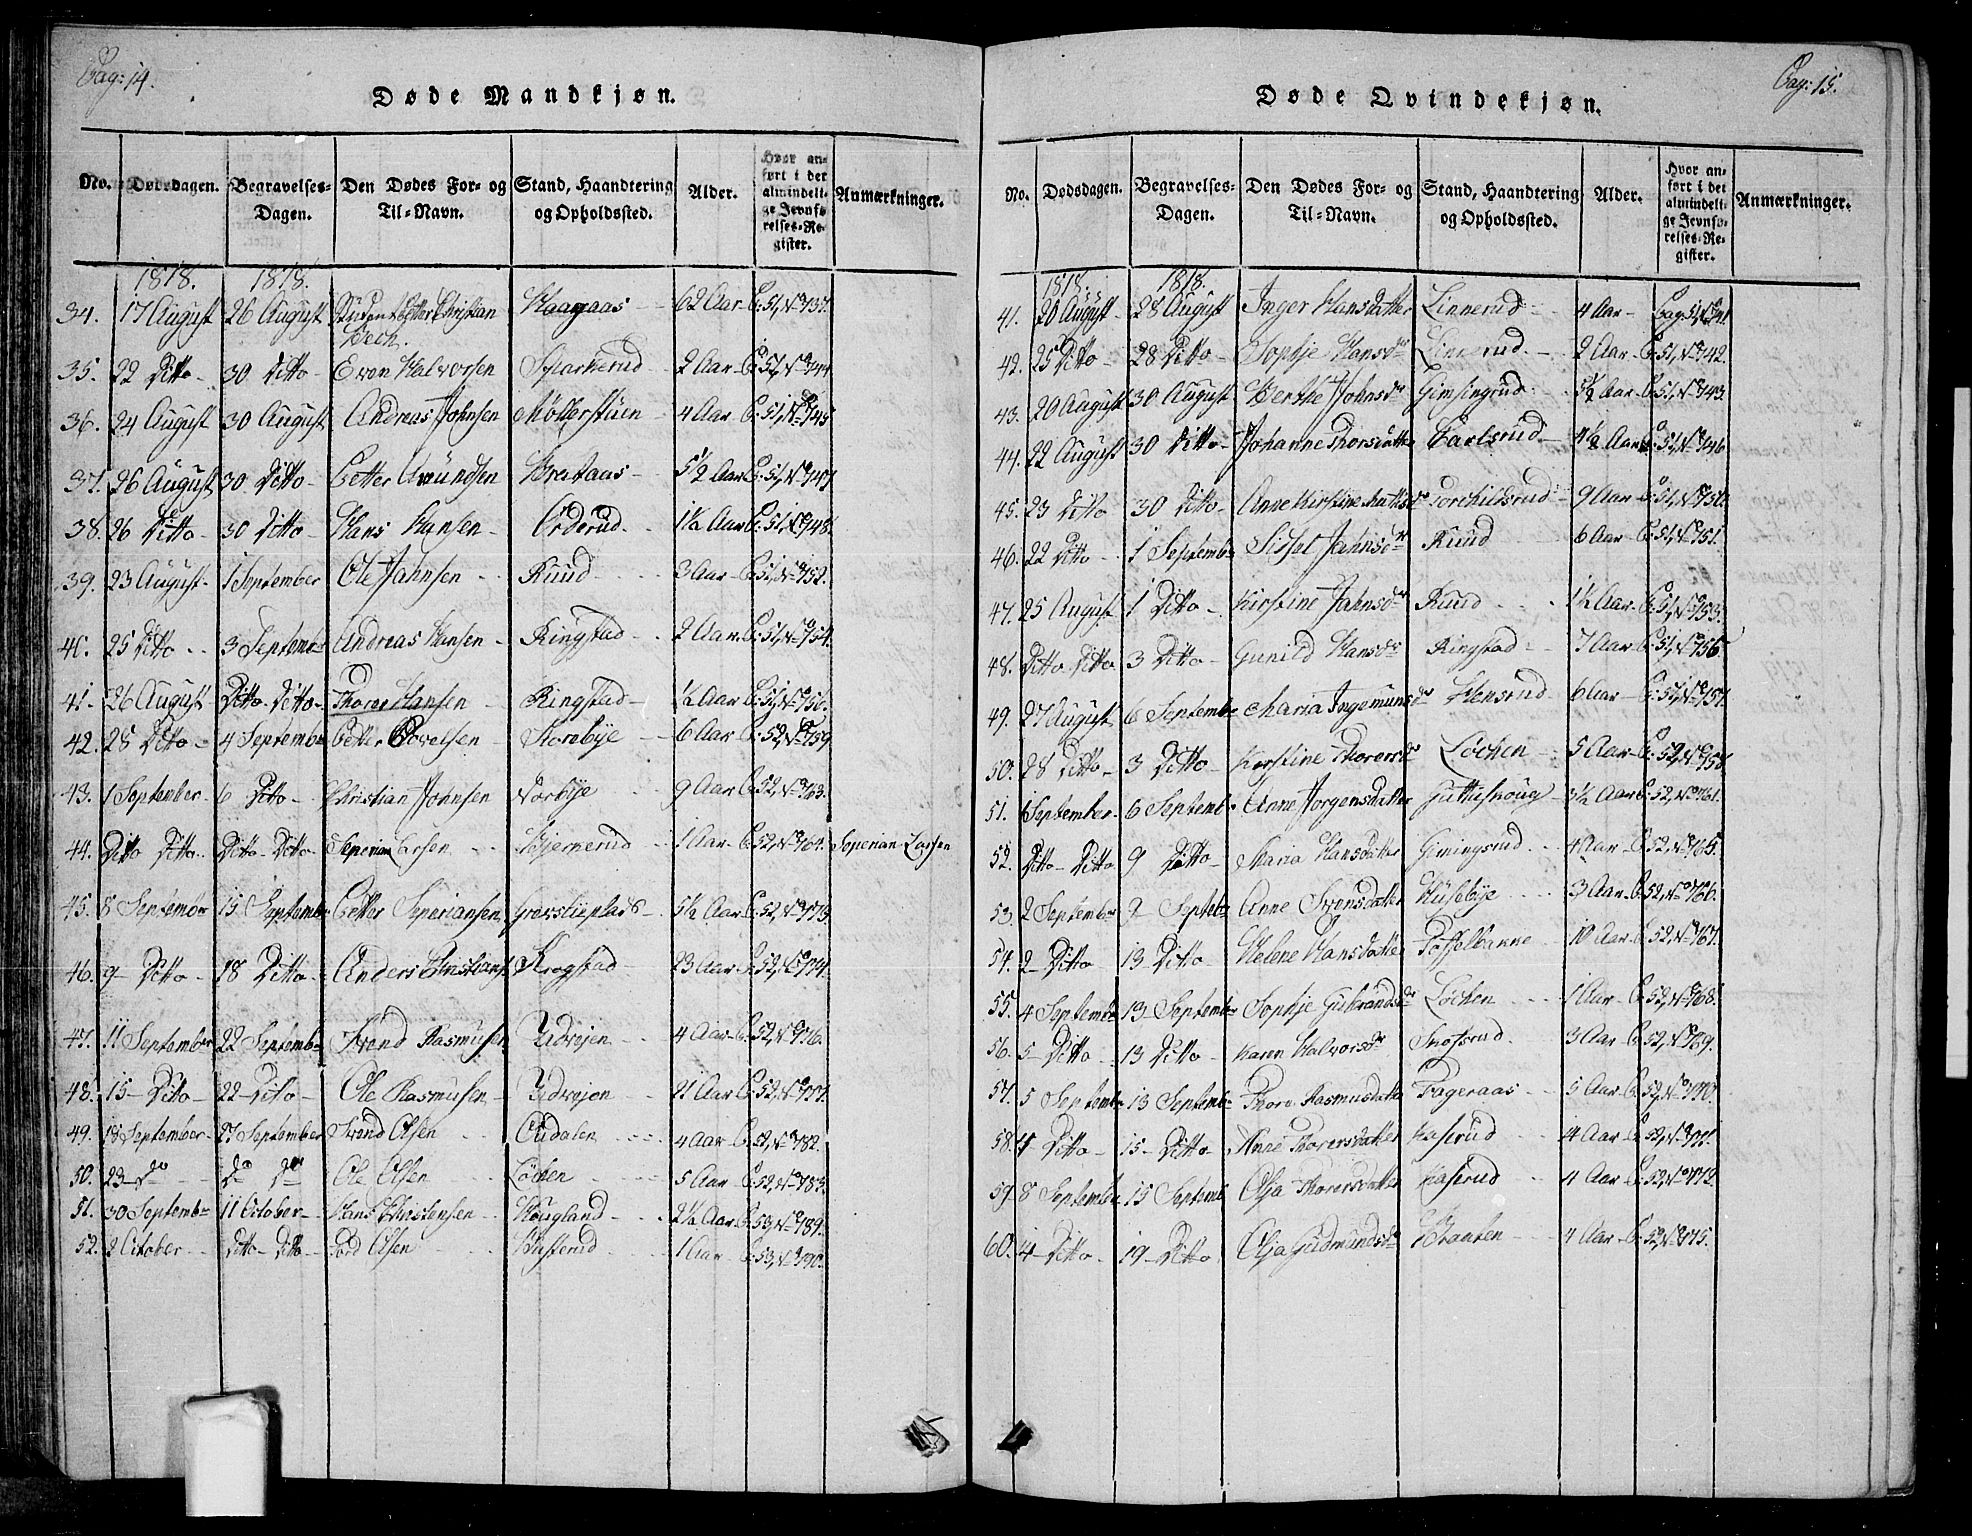 Pag: 14.
Døde Mandkjøn.
No. Dødsdagen. Begravelses-Dagen. Den Dødes For- og Til-Navn. Stand, Haandtering og Opholdssted. Alder. Hvor anført i det almindelige Jevnførelses-Register. Anmærkninger.
1818. 1818.
34. 17 August 26 August Student Petter Christian Bech. Haagaas 62 Aar P: 51, No 737.
35. 22 Ditto 30 Ditto Even Halvorsen Sparkerud 2 Aar P: 51, No 744
36. 24 August 30 August Andreas Johnsen Møllerstuen 4 Aar P: 51, No 745
37. 26 August 30 Ditto Petter Amundsen Brataas 5½ Aar P: 51, No 747
38. 26 Ditto 30 Ditto Hans Hansen Orderud 1½ Aar P: 51, No 748.
39. 23 August 1 September Ole Jahnsen Ruud 3 Aar P: 51, No 752.
40. 25 Ditto 3 Septembr Andreas Hansen Ringstad 2 Aar P: 51, No 754.
41. 26 August Ditto Ditto Thorer Hansen Ringstad ½ Aar P: 51, No 756.
42. 28 Ditto 4 Septembr Petter Povelsen Storebye 6 Aar P: 52, No 759
43. 1 September 6 Ditto Christian Johnsen Norbye 9 Aar P: 52, No 763.
44. Ditto Ditto Ditto Ditto Seperian Larsen Bjernerud 1 Aar P: 52, No 764. Seperian Larsen
45. 8 Septembr 15 Septembr Petter Seperiansen Grøsliepladsen 5½ Aar P: 52, No 773.
46. 9 Ditto 18 Ditto Anders Christians. Krogstad 23 Aar P: 52, No 774.
47. 11 September 22 Septembr Trond Rasmusen Udvejen 4 Aar P: 52, No 776.
48. 15 Ditto 22 Ditto Ole Rasmusen Udvejen 21 Aar P: 52, No 777.
49. 18 September 27 September Svend Olsen Oudalen 4 Aar P: 52, No 782.
50. 23 Do Do Do Ole Olsen Løchen 5 Aar P: 52, No 783.
51. 30 Septembr 11 October Hans Christensen Hougland 2½ Aar P: 53, No 789.
52. 2 October Ditto Ditto Tord Olsen Husterud 1 Aar P: 53, No 790.
Pag: 15.
Døde Qvindekjøn.
No. Dødsdagen. Begravelses-Dagen. Den Dødes For- og Til-Navn. Stand, Haandtering og Opholdssted. Alder. Hvor anført i det almindelige Jevnførelses-Register. Anmærkninger.
1818. 1818.
41. 20 August 28 August Inger Hansdatter Linnerud 4 Aar Pag: 51, No 741
42. 25 Ditto 28 Ditto Sophje Hansdr Linnerud 2 Aar P: 51, No 742.
43. 20 August 30 August Berthe Johnsdr Gimsingrud 5½ Aar P: 51, No 743.
44. 22 August 30 Ditto Johanne Thorsdatter Carlsrud 4½ Aar P: 51, No 746
45. 23 Ditto 30 Ditto Anne Kirstine Mathisdr Torchildsrud 9 Aar P: 51, No 750.
46. 22 Ditto 1 Septembr Sissel Jahnsdr Ruud 6 Aar P: 51, No 751.
47. 25 August 1 Ditto Kirstine Jahnsdr Ruud 1½ Aar P: 51, No 753.
48. Ditto Ditto 3 Ditto Gunild Hansdr Ringstad 7 Aar P: 51, No 755
49. 27 August 6 Septembr Maria Ingemunsdr Hensrud 6 Aar P: 51, No 757.
50. 28 Ditto 3 Ditto Kirstine Thorersdr Løchen 5 Aar P: 52, No 758
51. 6 September 6 Septemb. Anne Jorgensdatter Guttuhoug 3½ Aar P: 52, No 761.
52. Ditto Ditto 9 Ditto Maria Hansdatter Gimingsrud 4 Aar P: 52, No 765.
53. 2 Septembr 9 Septebr Anne Svensdatter Husebye 3 Aar P: 52, No 766.
54. 2 Ditto 13 Ditto Helene Hansdatter Toffelbanne 10 Aar P: 52, No 767.
55. 4 Septembr 13 Septembr Sophje Gubrandsdr Løchen 1 Aar P: 52, No 768.
56. 5 Ditto 13 Ditto Karen Halvorsdr Skofsrud 3 Aar P: 52, No 769.
57. 5 Septembr 13 Septembr Thore Rasmusdatter Fageraas 5 Aar P: 52, No 770.
58. 4 Ditto 15 Ditto Anne Thorersdatter Kaserud 14 Aar P: 52, No 771.
59. 8 Septembr 15 Septemb Olja Thorersdatter Kaserud 4 Aar P: 52, No 772.
60. 14 Ditto 19 Ditto Olja Gudmundsdr Braaten 4 Aar P: 52, No 775.